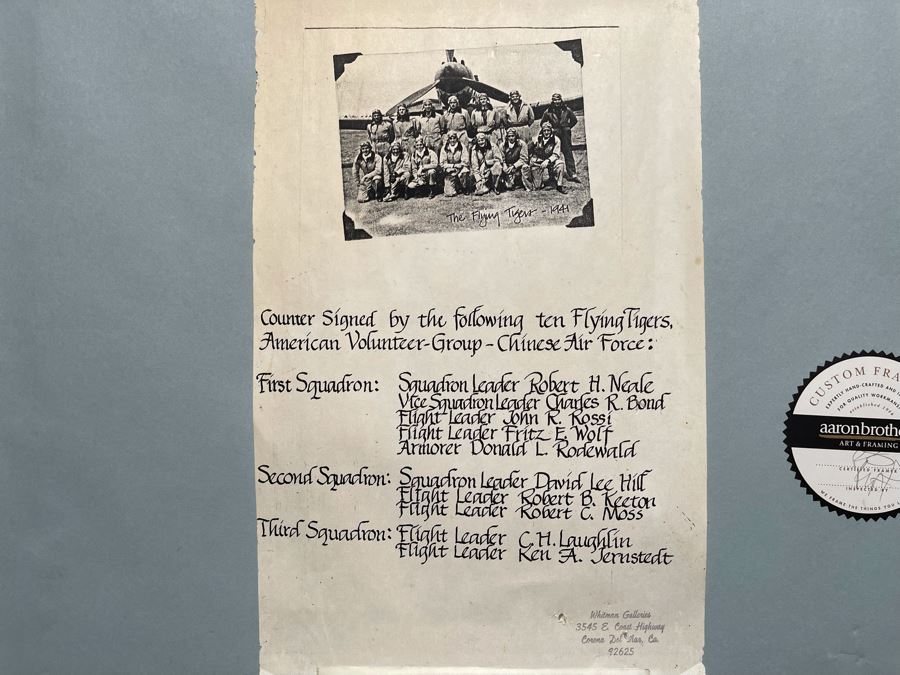 The Flying Tigers - 1941
Counter Signed by the following ten Flying Tigers,
American Volunteer-Group - Chinese Air Force:
First Squadron: Squadron Leader Robert H. Neale
Vice Squadron Leader Charles R. Bond
Flight Leader John R. Rossi
Flight Leader Fritz E. Wolf
Armorer Donald L. Rodewald
Second Squadron: Squadron Leader David Lee Hill
Flight Leader Robert B. Keeton
Flight Leader Robert C. Moss
Third Squadron: Flight Leader C.H. Laughlin
Flight Leader Ken A. Jernstedt
Whitman Galleries
3545 E. Coast Highway
Corona Del Mar, Ca.
92625
CUSTOM FRA
EXPERTLY HAND-CRAFTED AND
FOR QUALITY WORKMANS
established 1946
aaronbrothe
ART & FRAMING
CERTIFIED FRAMER
INSPECTED BY
WE FRAME THE THINGS YOU